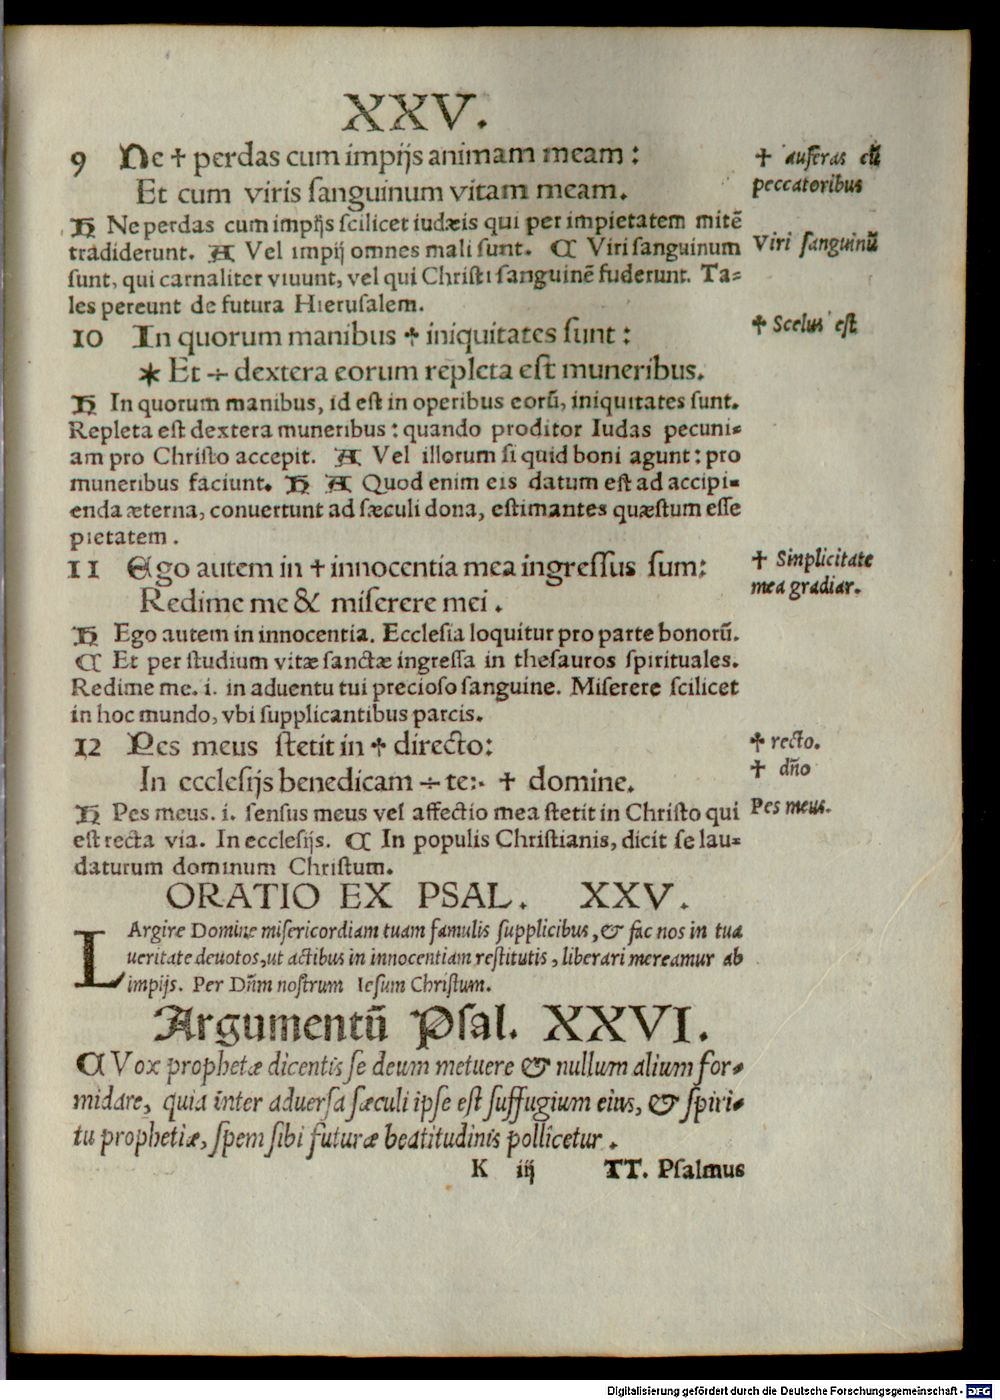 XXV.
9 Ne ✝ perdas cum impijs animam meam :
Et cum viris sanguinum vitam meam.
✝ auferas cū
peccatoribus
H Ne perdas cum impijs scilicet iudæis qui per impietatem mitē
tradiderunt. A Vel impij omnes mali sunt. C Viri sanguinum
Viri sanguinū
sunt, qui carnaliter viuunt, vel qui Christi sanguinē fuderunt. Ta=
les pereunt de futura Hierusalem.
10 In quorum manibus ✝ iniquitates sunt :
✝ Scelus est
* Et ÷ dextera eorum repleta est muneribus.
H In quorum manibus, id est in operibus eorū, iniquitates sunt.
Repleta est dextera muneribus : quando proditor Iudas pecuni=
am pro Christo accepit. A Vel illorum si quid boni agunt : pro
muneribus faciunt. H A Quod enim eis datum est ad accipi=
enda æterna, conuertunt ad sæculi dona, estimantes quæstum esse
pietatem .
11 Ego autem in ✝ innocentia mea ingressus sum:
✝ Simplicitate
mea gradiar.
Redime me & miserere mei .
H Ego autem in innocentia. Ecclesia loquitur pro parte bonorū.
C Et per studium vitæ sanctæ ingressa in thesauros spirituales.
Redime me. i. in aduentu tui precioso sanguine. Miserere scilicet
in hoc mundo, vbi supplicantibus parcis.
12 Pes meus stetit in ✝ directo:
✝ recto.
✝ dño
In ecclesijs benedicam ÷ te:· ✝ domine.
H Pes meus. i. sensus meus vel affectio mea stetit in Christo qui
Pes meus.
est recta via. In ecclesijs. C In populis Christianis, dicit se lau=
daturum dominum Christum.
ORATIO EX PSAL. XXV.
LArgire Domine misericordiam tuam famulis supplicibus, & fac nos in tua
ueritate deuotos, ut actibus in innocentiam restitutis, liberari mereamur ab
impijs. Per Dn̄m nostrum Iesum Christum.
Argumentū Psal. XXVI.
C Vox prophetæ dicentis se deum metuere & nullum alium for=
midare, quia inter aduersa sæculi ipse est suffugium eius, & spiri=
tu prophetiæ, spem sibi futuræ beatitudinis pollicetur .
K iij TT. Psalmus
Digitalisierung gefördert durch die Deutsche Forschungsgemeinschaft - DFG